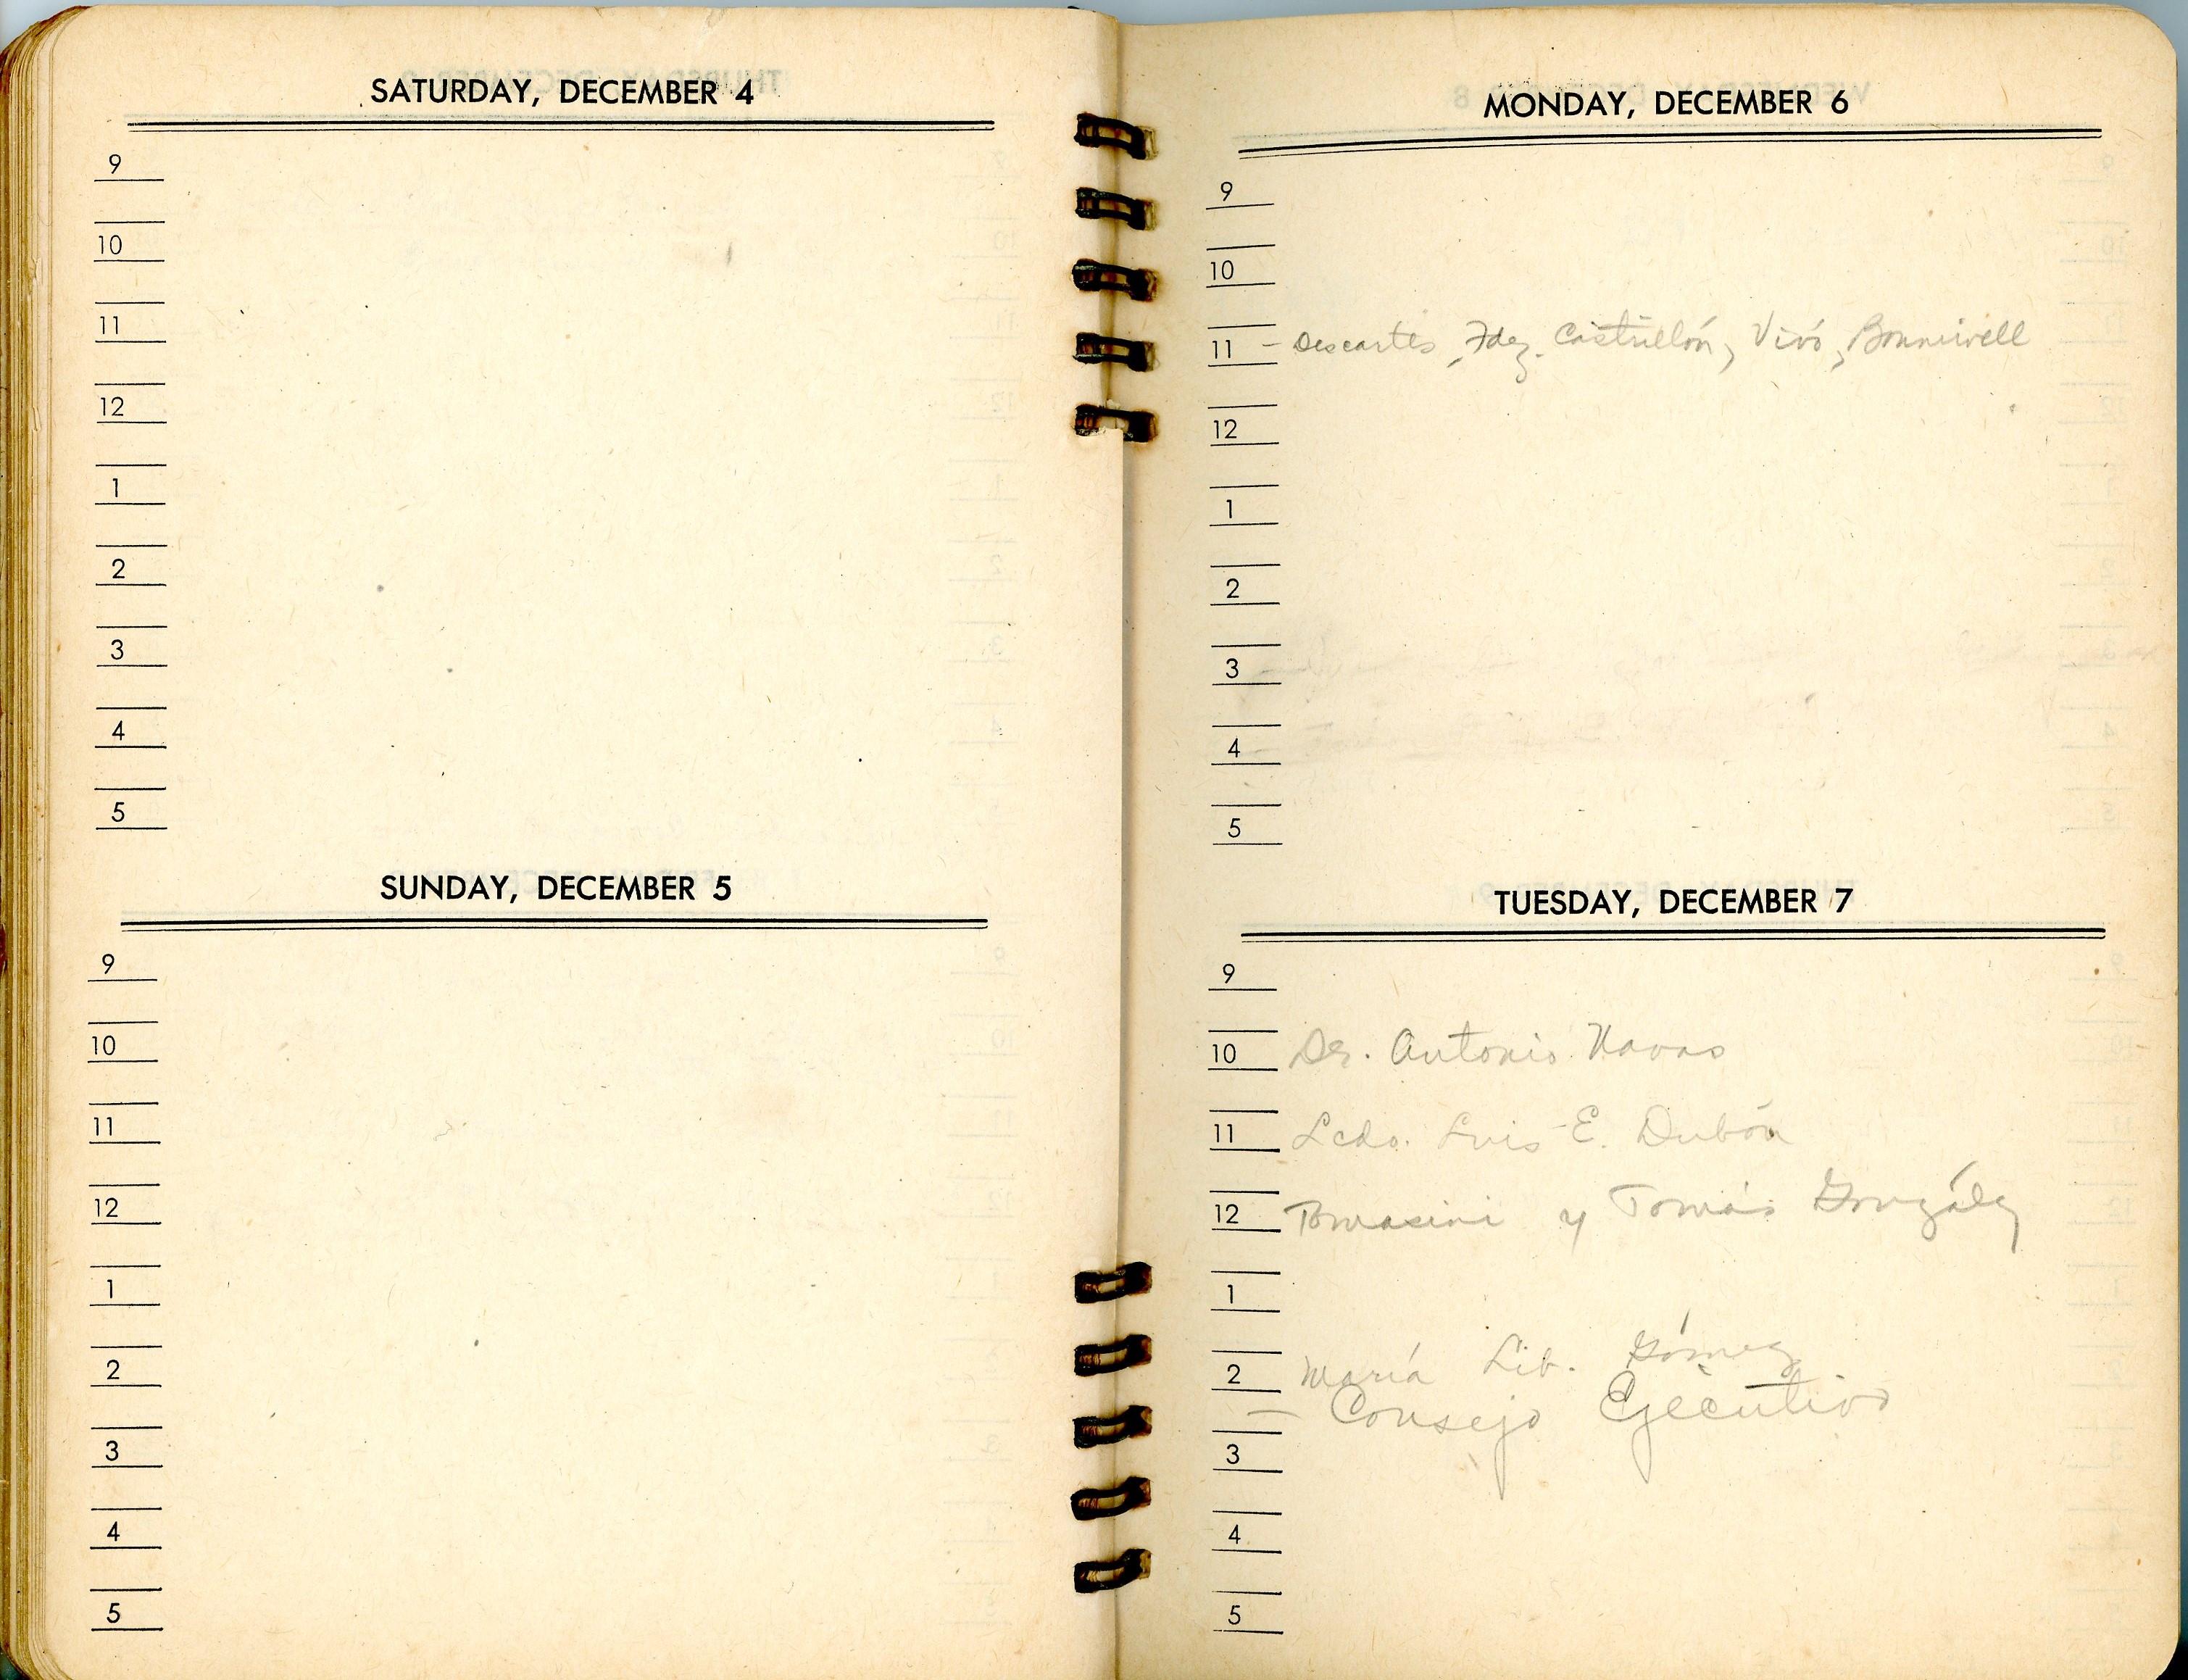 SATURDAY, DECEMBER 4
9
10
11
12
1
2
3
4
5
SUNDAY, DECEMBER 5
9
10
11
12
1
2
3
4
5
MONDAY, DECEMBER 6
9
10
11 - Descartes, Fdez. Castrillón, Vivó, Bonniwell
12
1
2
3
4
5
TUESDAY, DECEMBER 7
9
10 Dr. Antonio Navas
11 Lcdo. Luis E. Dubón
12 Tomasini y Tomás González
1
2 María Lib. Gómez
— Consejo Ejecutivo
3
4
5